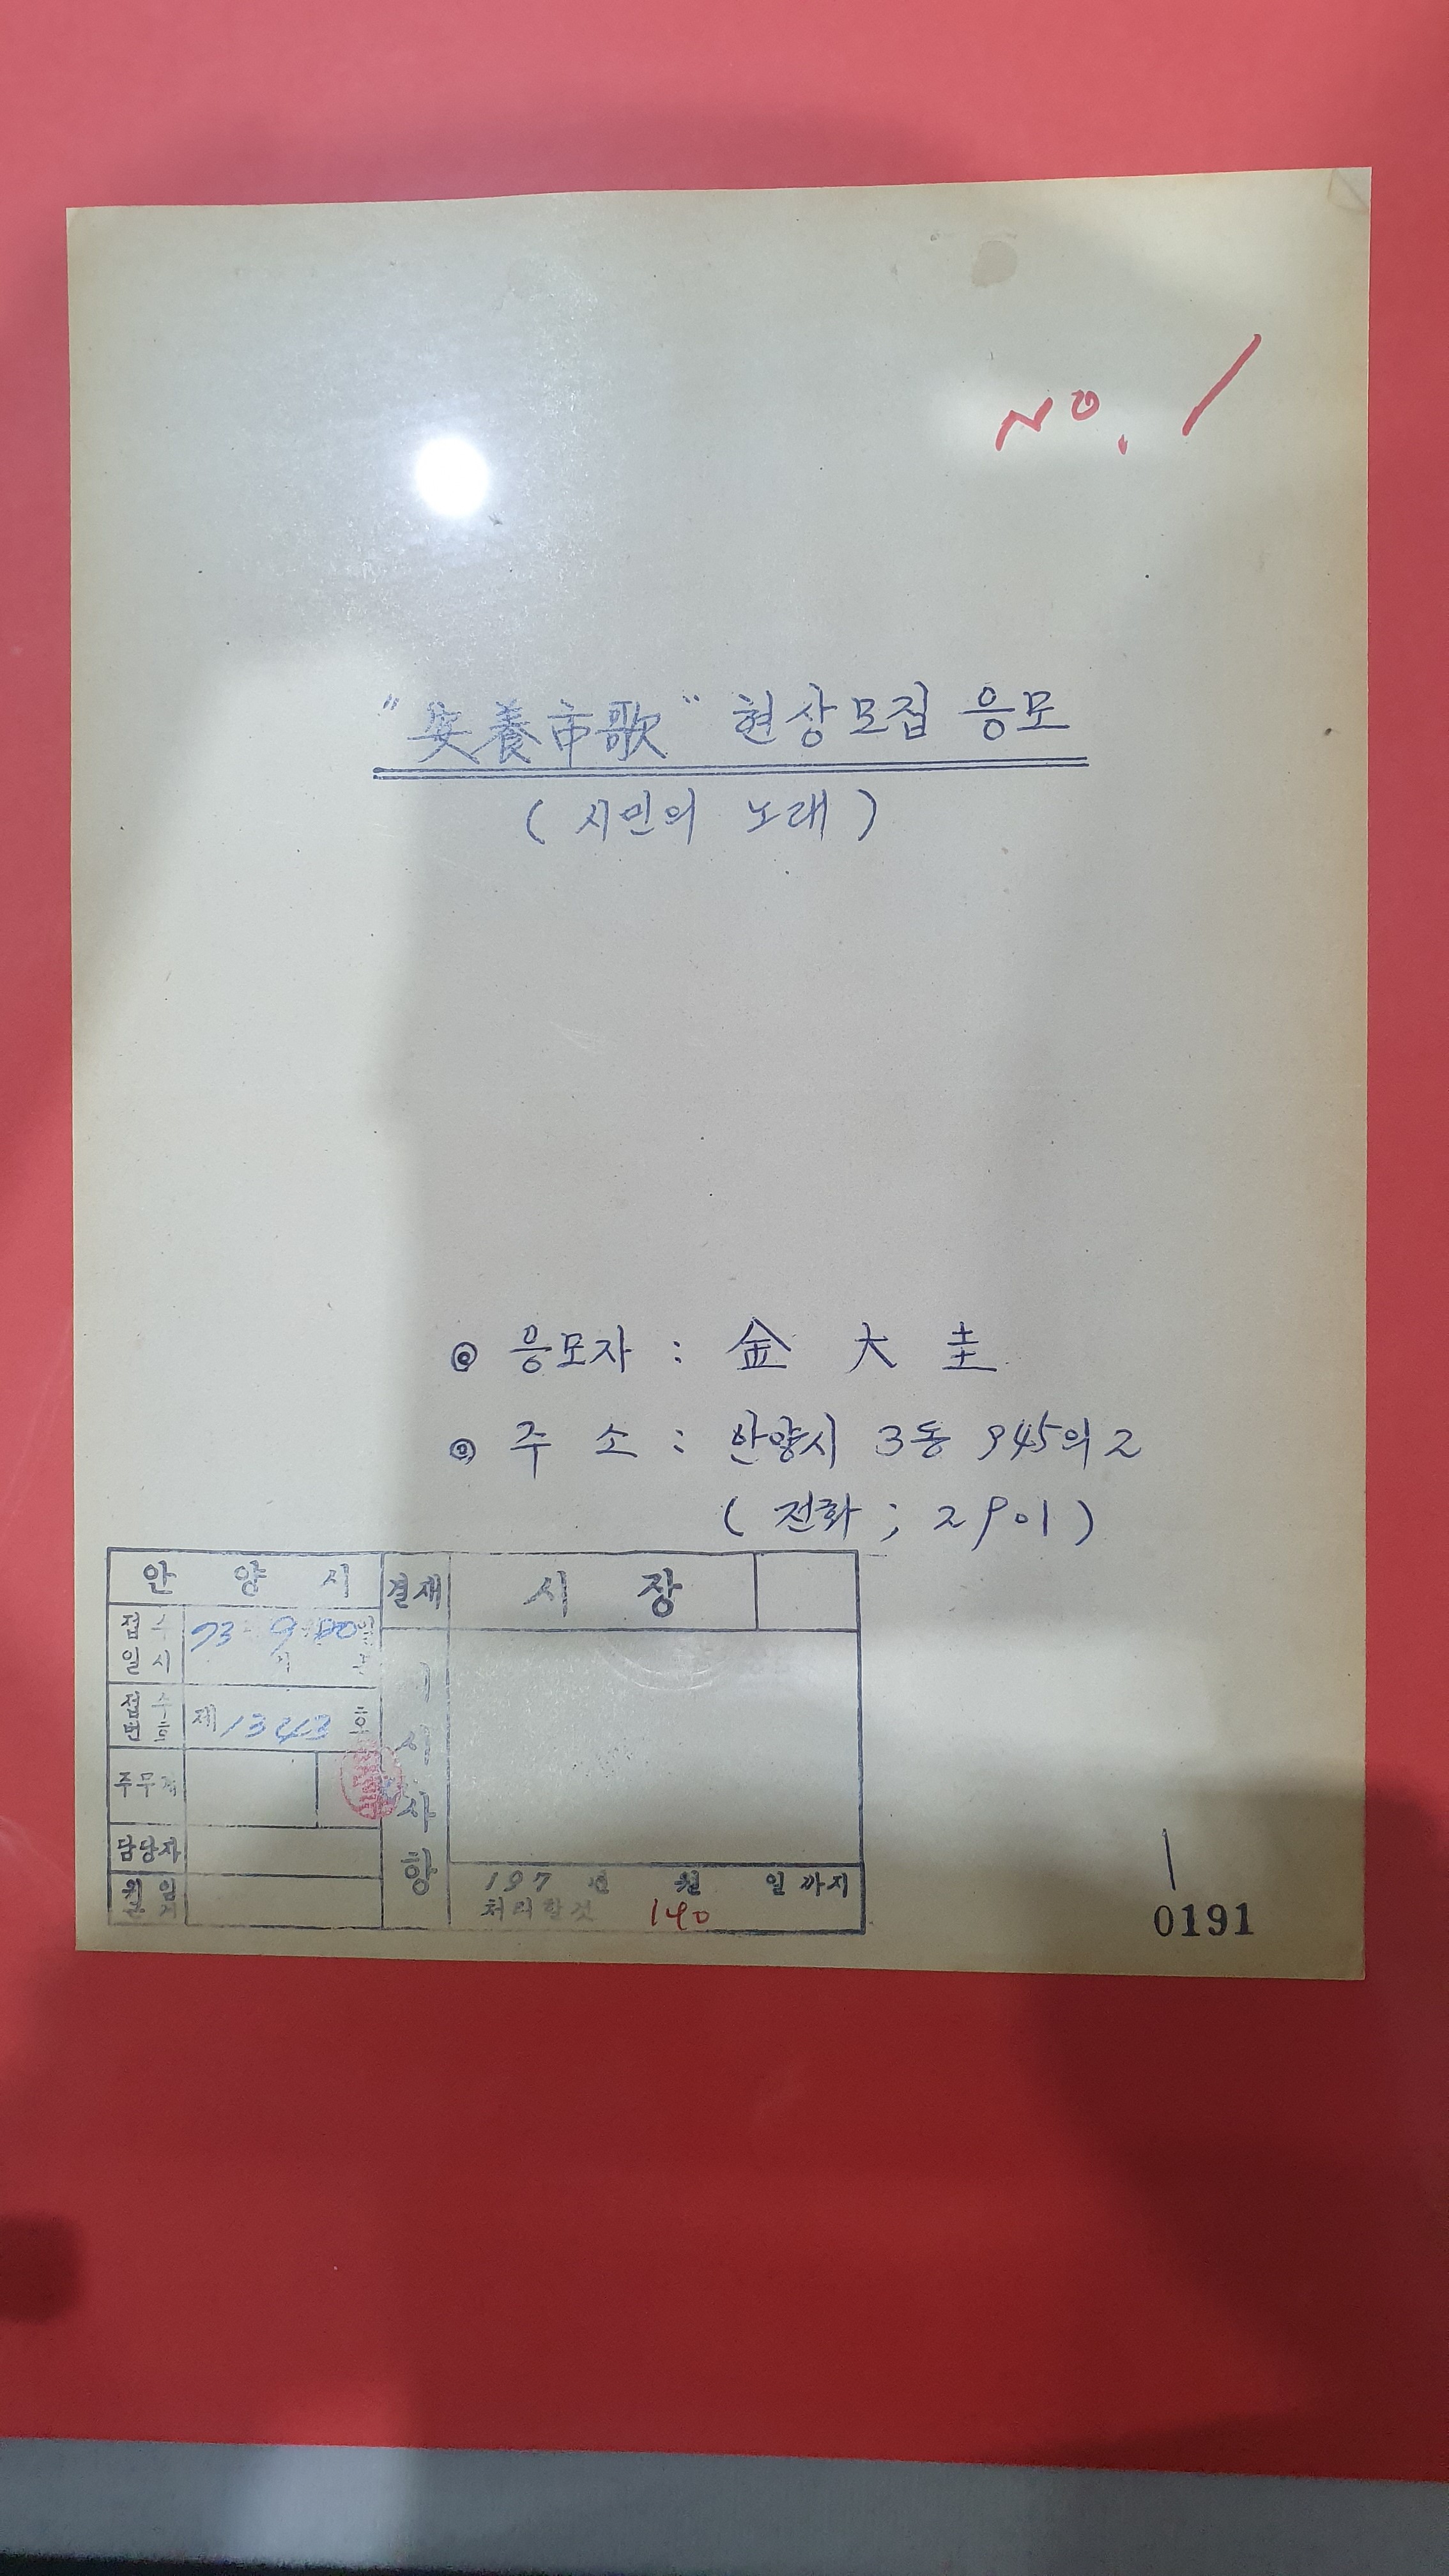 No. 1
"安養市歌" 현상모집 응모
( 시민의 노래 )
◎ 응모자 : 金 大 圭
◎ 주 소 : 안양시 3동 945의 2
( 전화 ; 2901 )
안 양 시
결재
시 장
접수
일시
73 9
접수
번호
제 1343 호
주무계
담당자
지시사항
197 년 월 일 까지
처리할것
140
0191